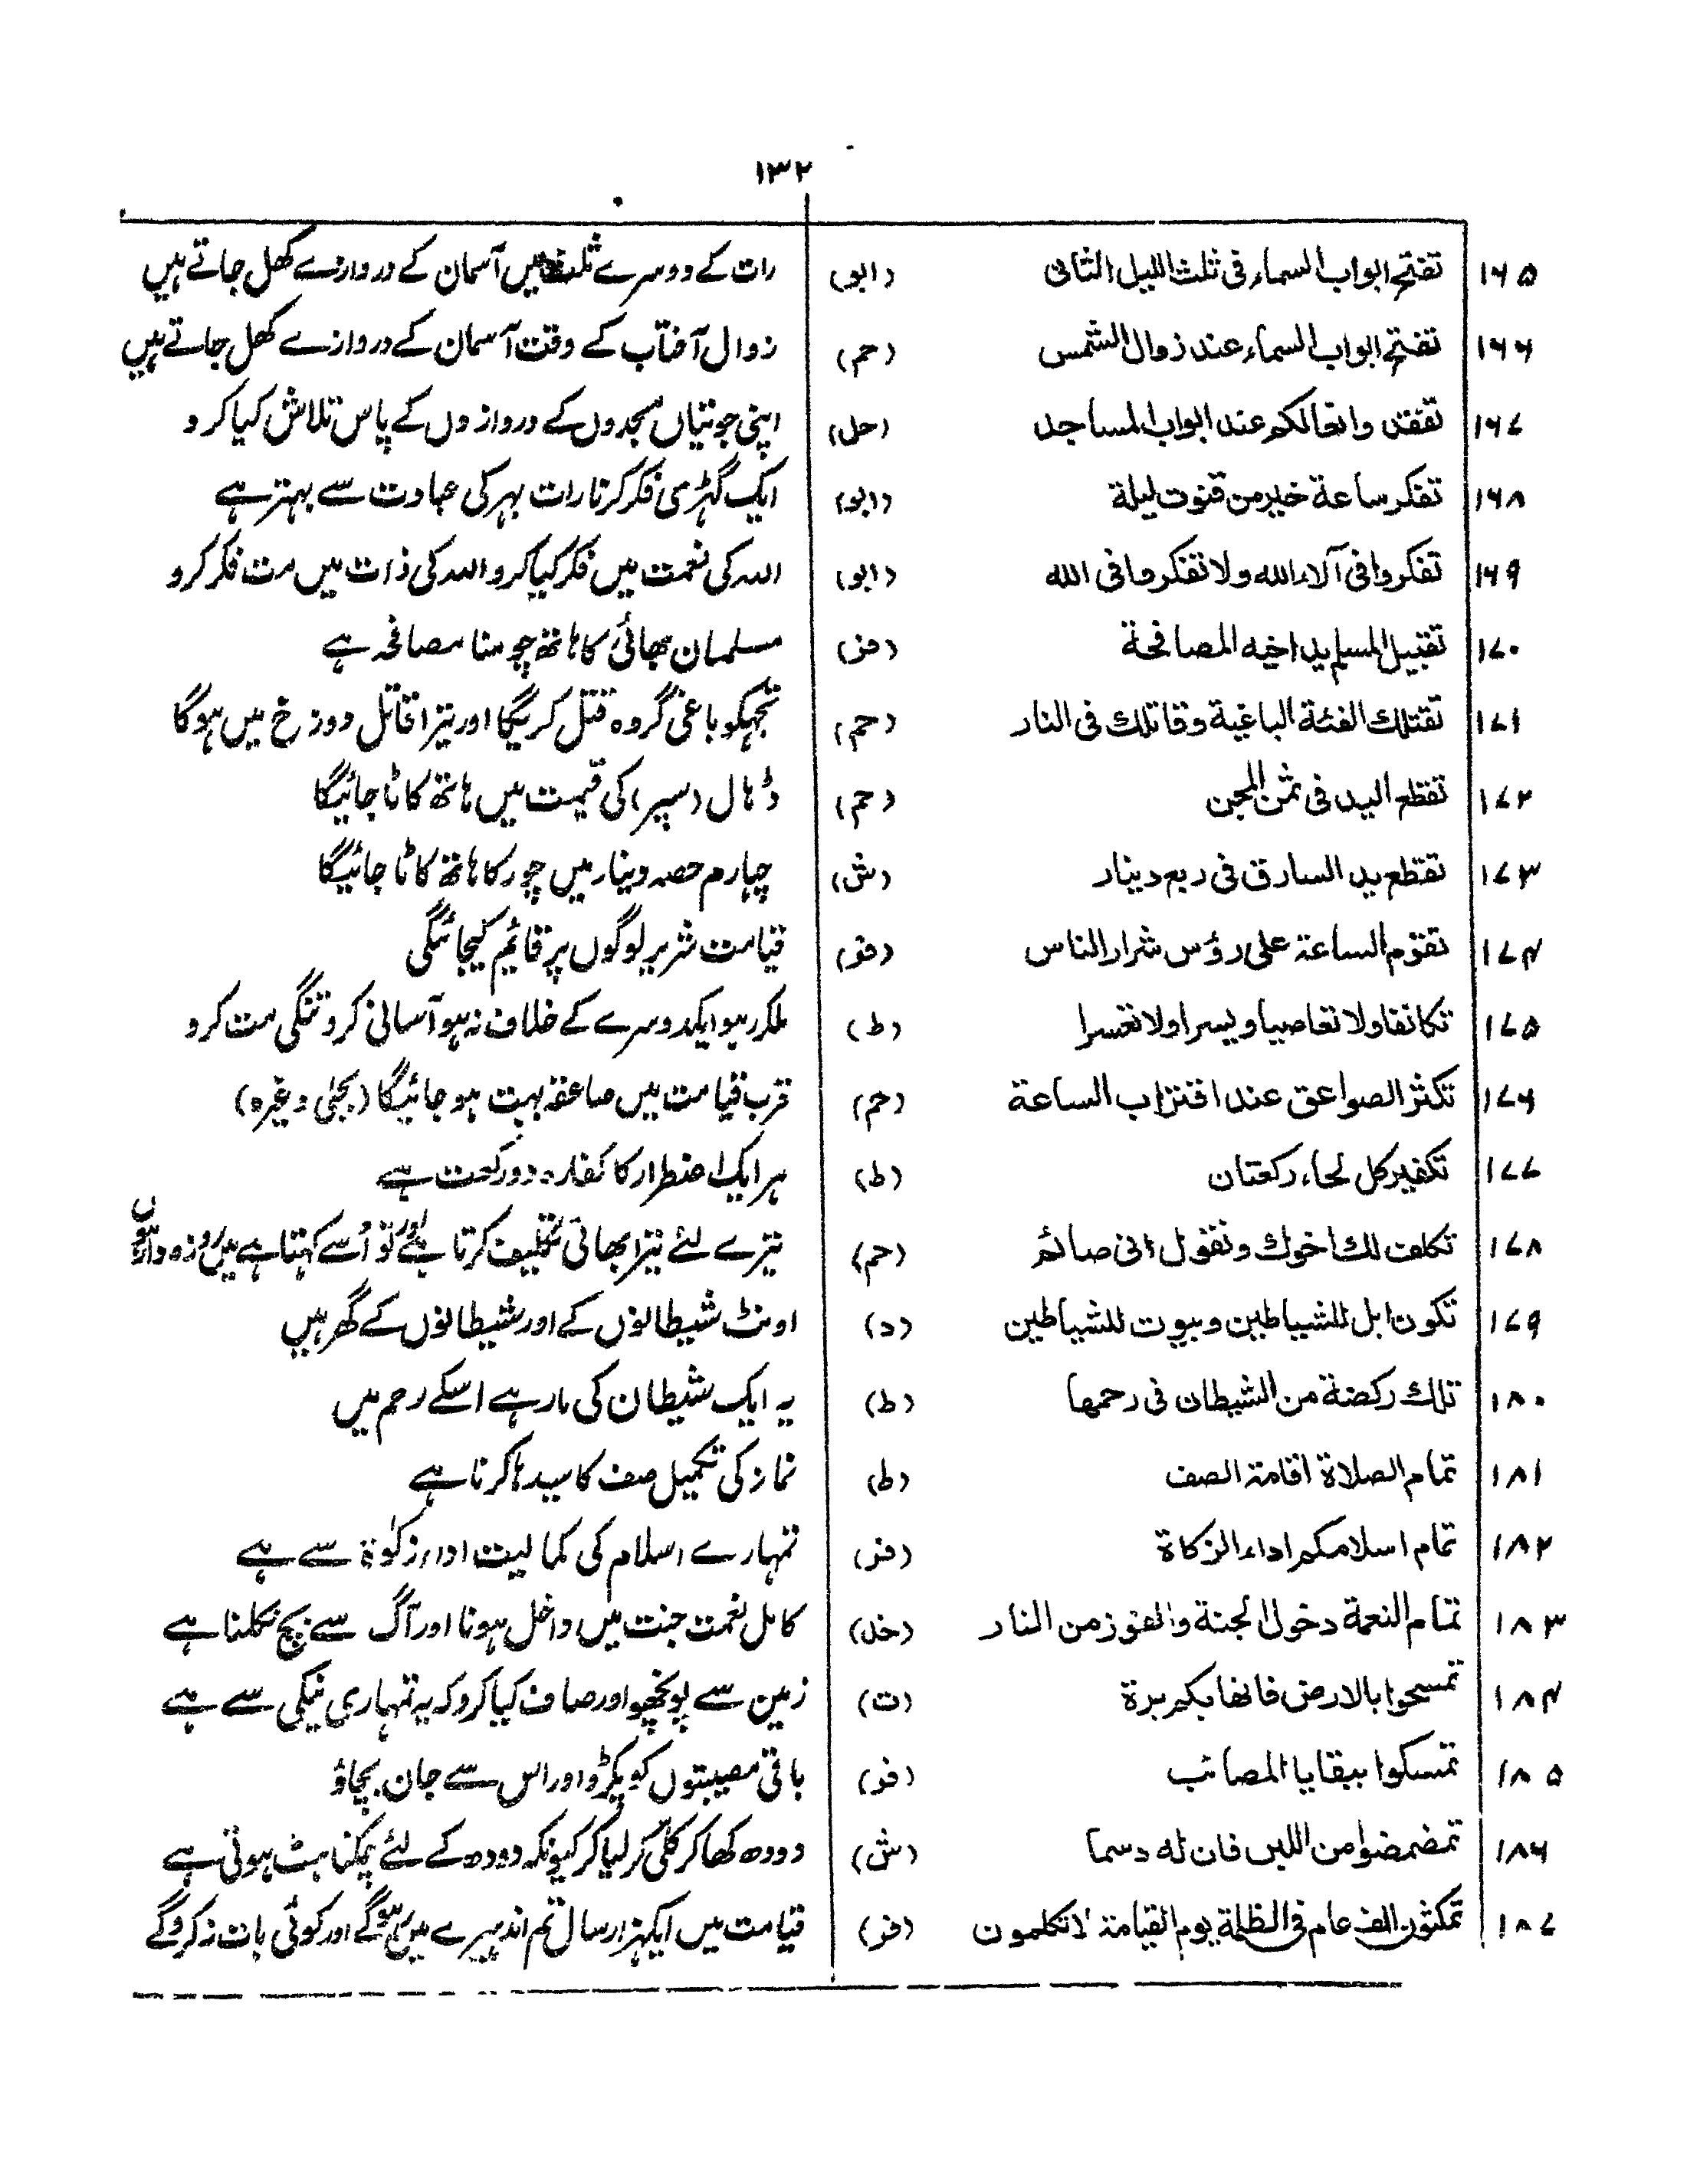 ۱۳۲
۱۶۵ تفتح ابواب السماء فی ثلث اللیل الثانی (ابو) رات کے دوسرے ثلث میں آسمان کے دروازے کھل جاتے ہیں
۱۶۶ تفتح ابواب السماء عند زوال الشمس (حم) زوال آفتاب کے وقت آسمان کے دروازے کھل جاتے ہیں
۱۶۷ تفقدوا نعالکم عند ابواب المساجد (حل) اپنی جوتیاں مسجدوں کے دروازوں کے پاس تلاش کیا کرو
۱۶۸ تفکر ساعة خیر من قنوت لیلة (ابو) ایک گہڑی فکر کرنا رات بہر کی عبادت سے بہتر ہے
۱۶۹ تفکروا فی آلاء الله ولا تفکروا فی الله (ابو) اللہ کی نعمت میں فکر کیا کرو اللہ کی ذات میں مت فکر کرو
۱۷۰ تقبیل المسلم ید اخیه المصافحة (فر) مسلمان بھائی کا ہاتھ چومنا مصافحہ ہے
۱۷۱ تقتلك الفئة الباغیة وقاتلك فی النار (حم) تجہکو باغی گروہ قتل کریگا اور تیرا قاتل دوزخ میں ہوگا
۱۷۲ تقطع الید فی ثمن المجن (حم) ڈہال (سپر) کی قیمت میں ہاتھ کاٹا جائیگا
۱۷۳ تقطع ید السارق فی ربع دینار (ش) چہارم حصہ دینار میں چور کا ہاتھ کاٹا جائیگا
۱۷۴ تقوم الساعة علی رؤس شرار الناس (فر) قیامت شریر لوگوں پر قائم کیجائیگی
۱۷۵ تکاتفا ولا تعاصیا ویسرا ولا تعسرا (ط) ملکر رہو ایکدوسرے کے خلاف نہ ہو آسانی کرو تنگی مت کرو
۱۷۶ تکثر الصواعق عند اقتراب الساعة (حم) قرب قیامت میں صاعقہ بہت ہو جائیگا (بجلی وغیرہ)
۱۷۷ تکفیر کل لحاء رکعتان (ط) ہر ایک اضطرار کا کفارہ دو رکعت ہے
۱۷۸ تکلف لك اخوك وتقول انی صائم (حم) تیرے لئے تیرا بھائی تکلیف کرتا ہے اور تو اُسے کہتا ہے میں روزہ دار ہوں
۱۷۹ تکون ابل للشیاطین وبیوت للشیاطین (د) اونٹ شیطانوں کے اور شیطانوں کے گھر ہیں
۱۸۰ تلك رکضة من الشیطان فی رحمها (ط) یہ ایک شیطان کی مار ہے اسکے رحم میں
۱۸۱ تمام الصلاة اقامة الصف (ط) نماز کی تکمیل صف کا سیدہا کرنا ہے
۱۸۲ تمام اسلامکم اداء الزکاة (فر) تمہارے اسلام کی کمالیت اداء زکوٰة سے ہے
۱۸۳ تمام النعمة دخول الجنة والفوز من النار (خل) کامل نعمت جنت میں داخل ہونا اور آگ سے بچ نکلنا ہے
۱۸۴ تمسحوا بالارض فانها بکم برة (ت) زمین سے پونچھو اور صاف کیا کرو کہ یہ تمہاری نیکی سے ہے
۱۸۵ تمسکوا ببقایا المصائب (فر) باقی مصیبتوں کو پکڑو اور اس سے جان بچاؤ
۱۸۶ تمضمضوا من اللبن فان له دسما (ش) دودھ کھا کر کلّی کر لیا کر کیونکہ دودھ کے لئے چکناہٹ ہوتی ہے
۱۸۷ تمکثون الف عام فی الظلمة یوم القیامة لا تکلمون (فر) قیامت میں ایکہزار سال تم اندہیرے میں رہوگے اور کوئی بات نہ کروگے